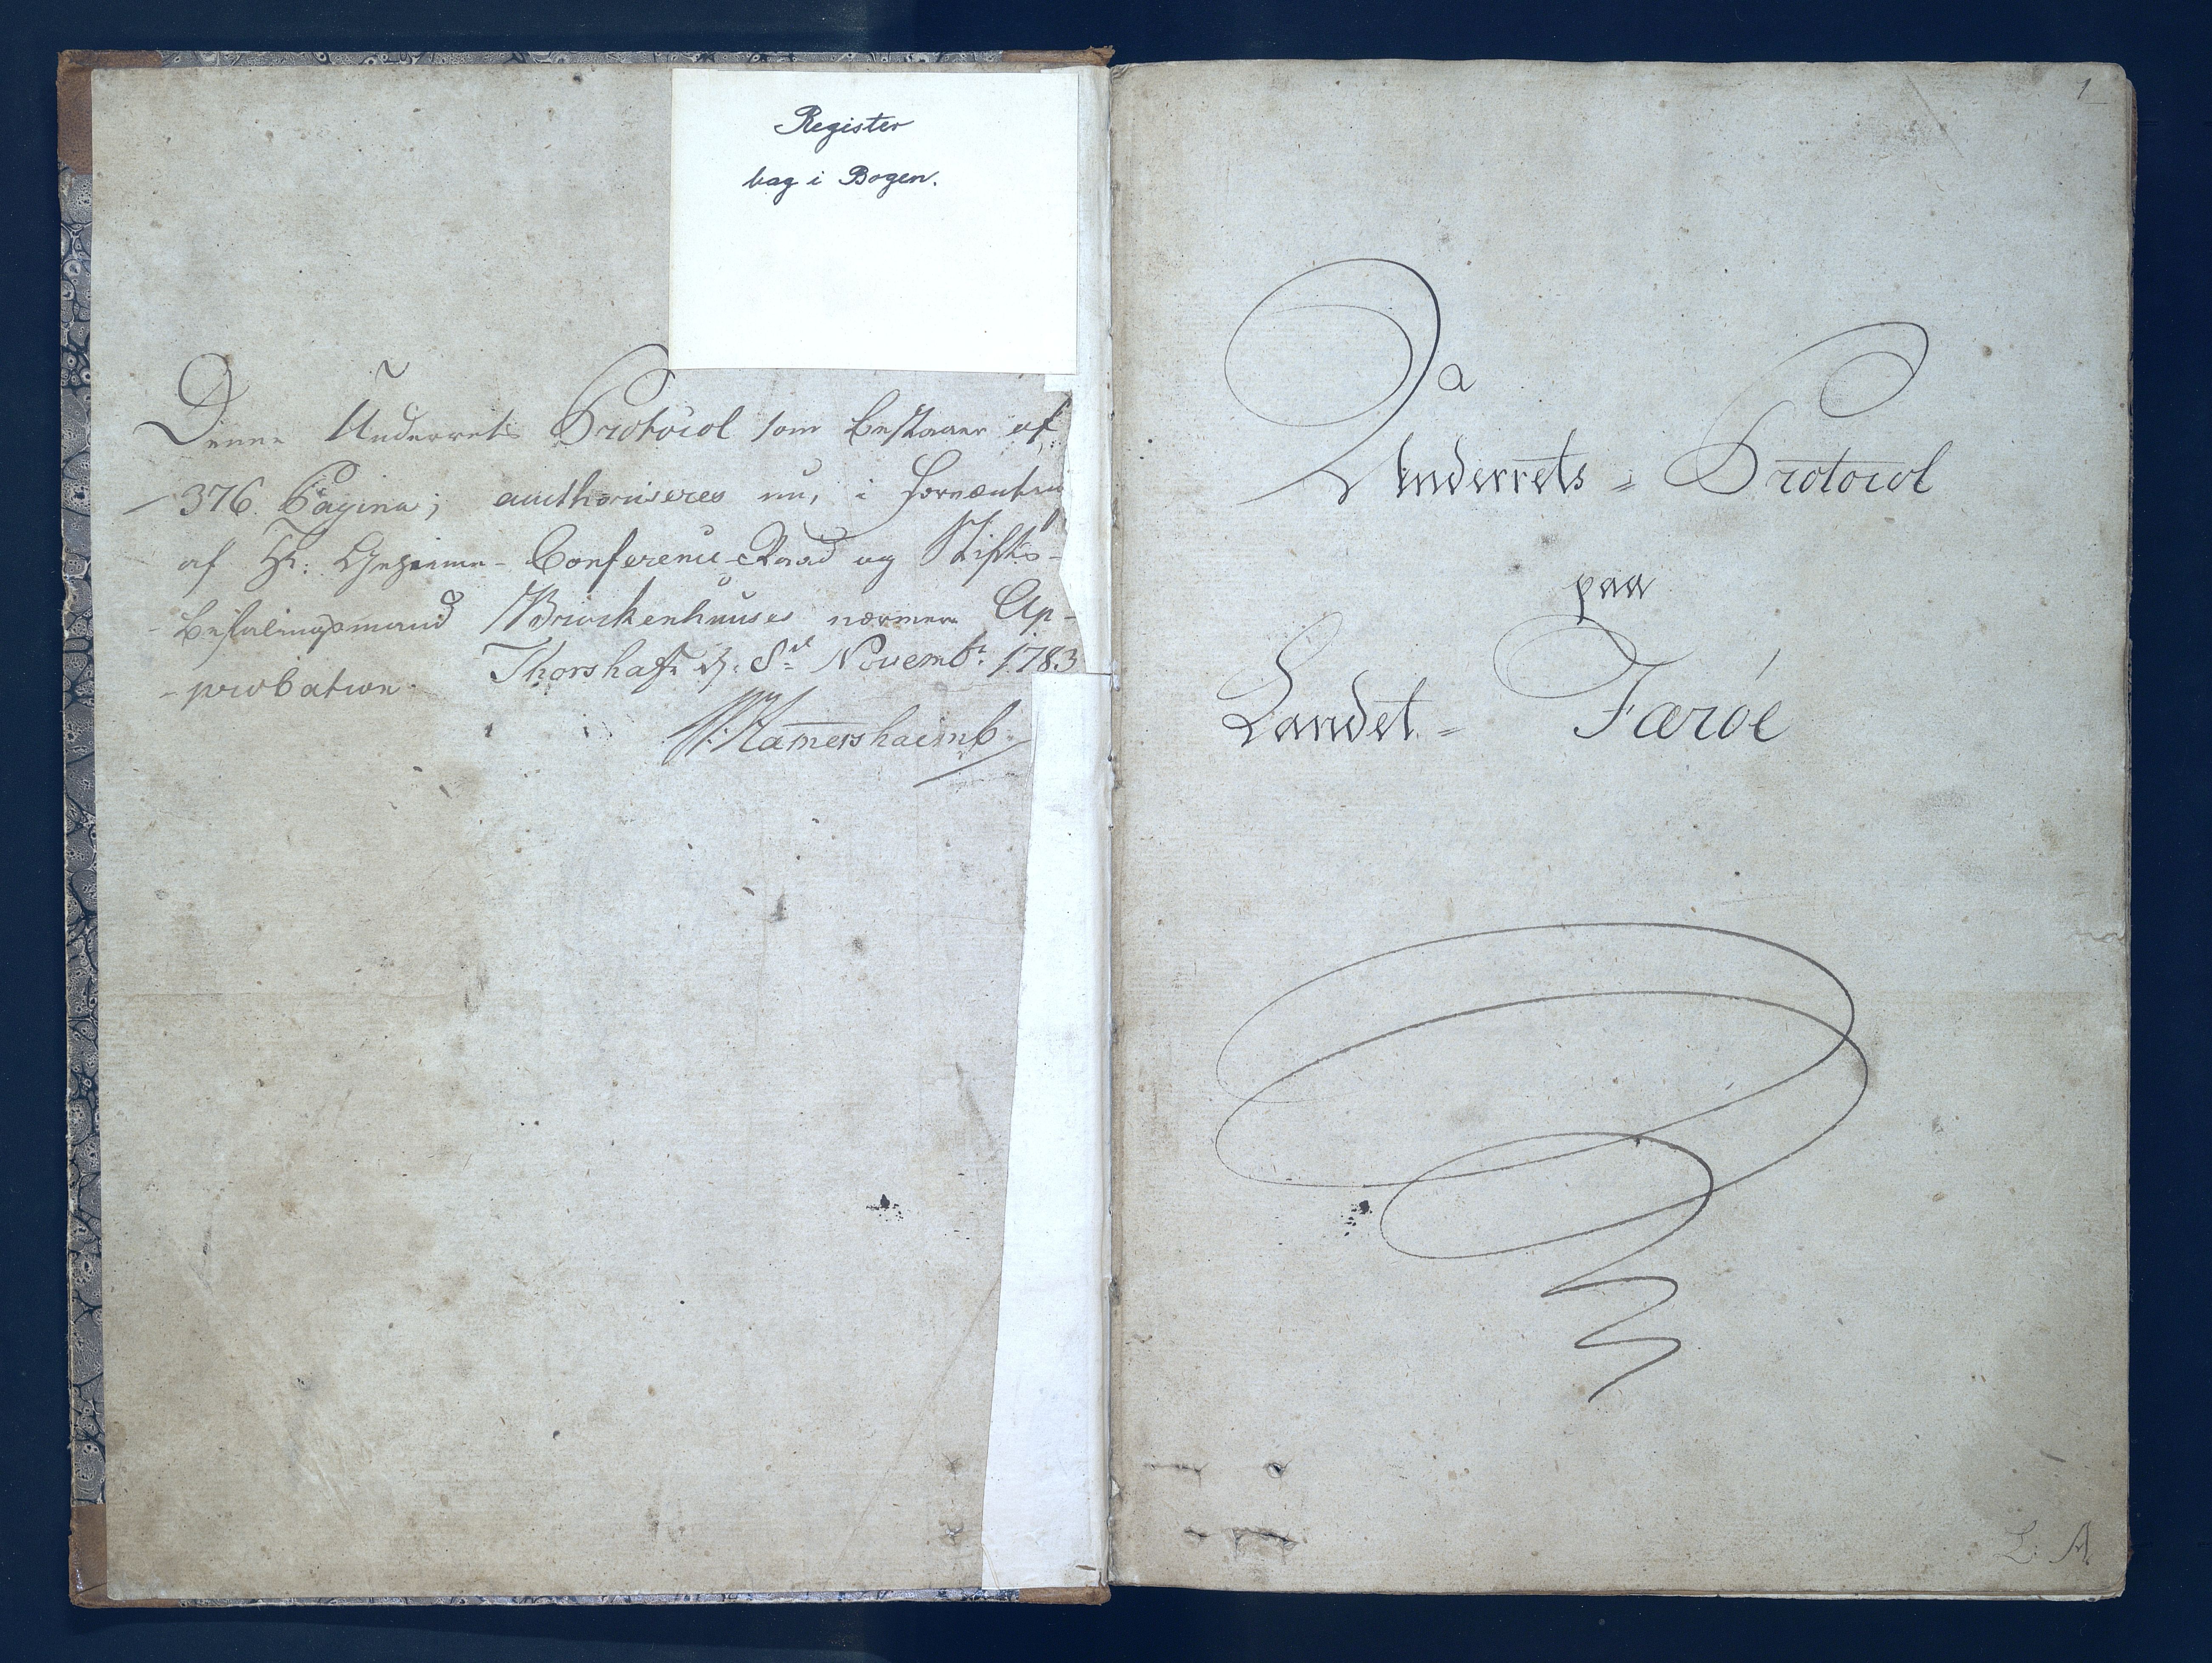 Register
bag i Bogen.
Denne Underrets Protocol som bestaaer af
376. Pagina; authoriseres nu, i Forventn
af Hr. Geheime-Conference-Raad og Stifts-
-befalingsmand Brockenhuuses nærmere Ap-
-probation. Thorshafn d. 8de Novembr. 1783
Hamershaimb
1
a
Underrets = Protocol
paa
Landet = Færöe
L. A.